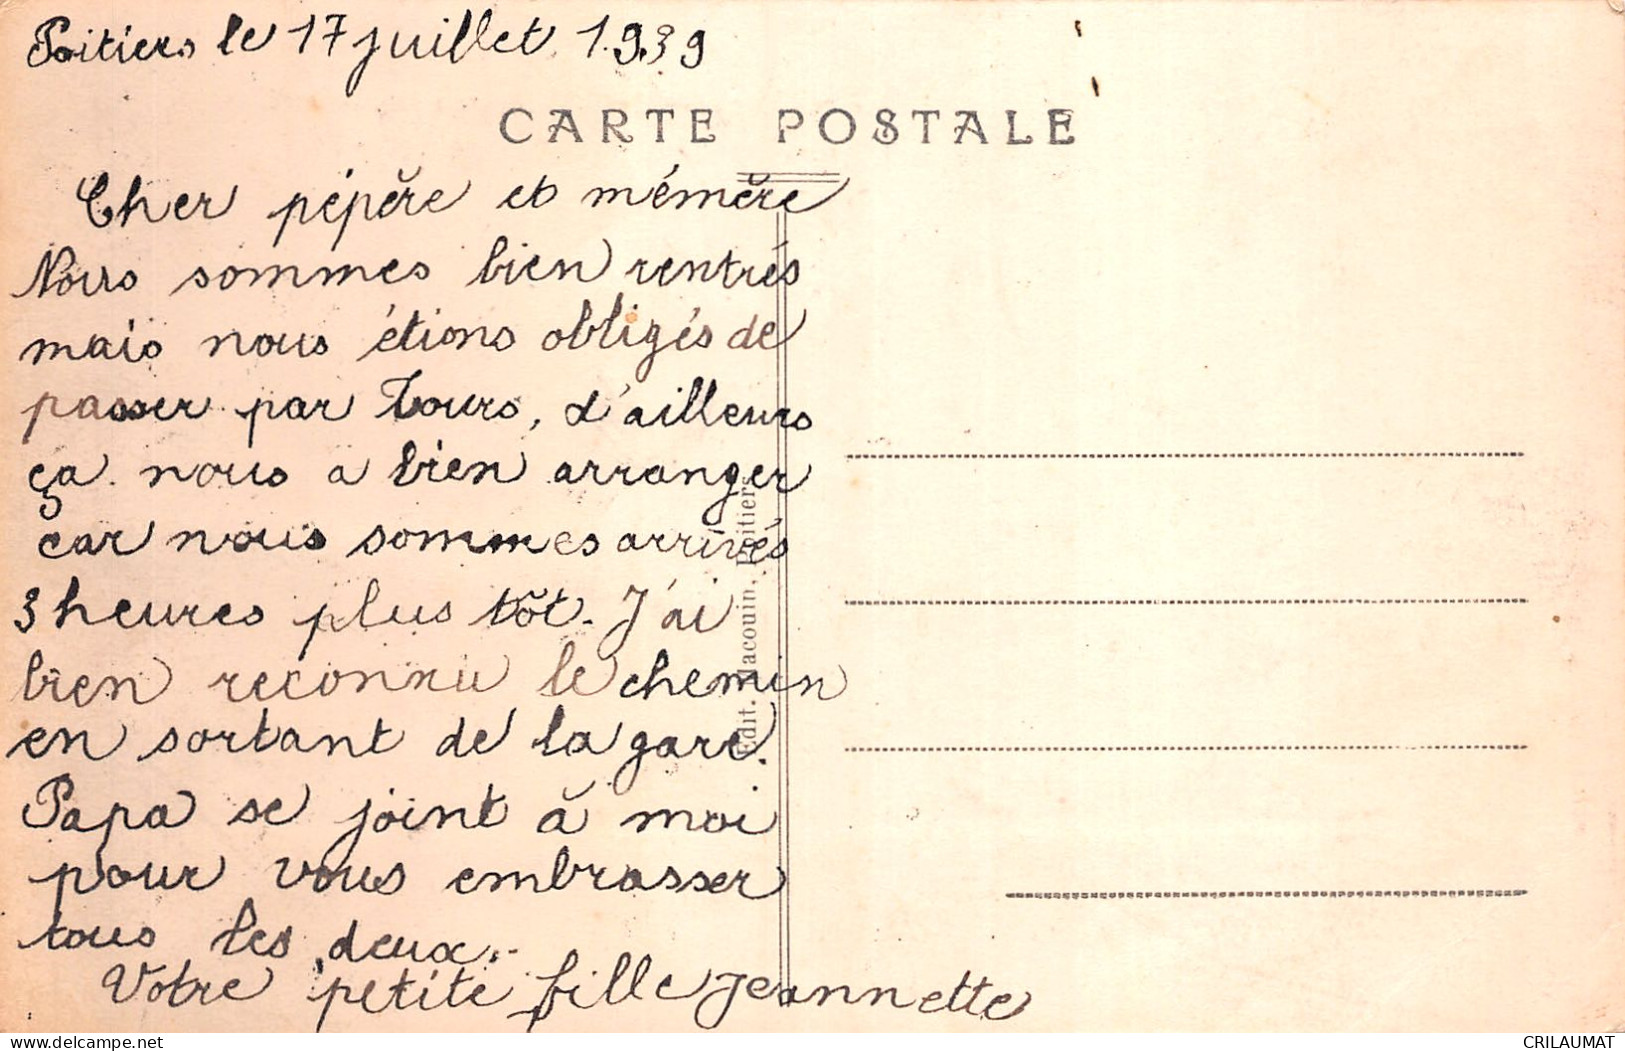 Poitiers le 17 juillet 1939
CARTE POSTALE
Cher pépère et mémère
Nous sommes bien rentrés
mais nous étions obligés de
passer par Tours, d'ailleurs
ça nous a bien arranger
car nous sommes arrivés
3 heures plus tôt. J'ai
bien reconnu le chemin
en sortant de la gare.
Papa se joint à moi
pour vous embrasser
tous les deux.
Votre petite fille Jeannette
Edit. Jacouin, Poitiers
delcampe.net
CRILAUMAT